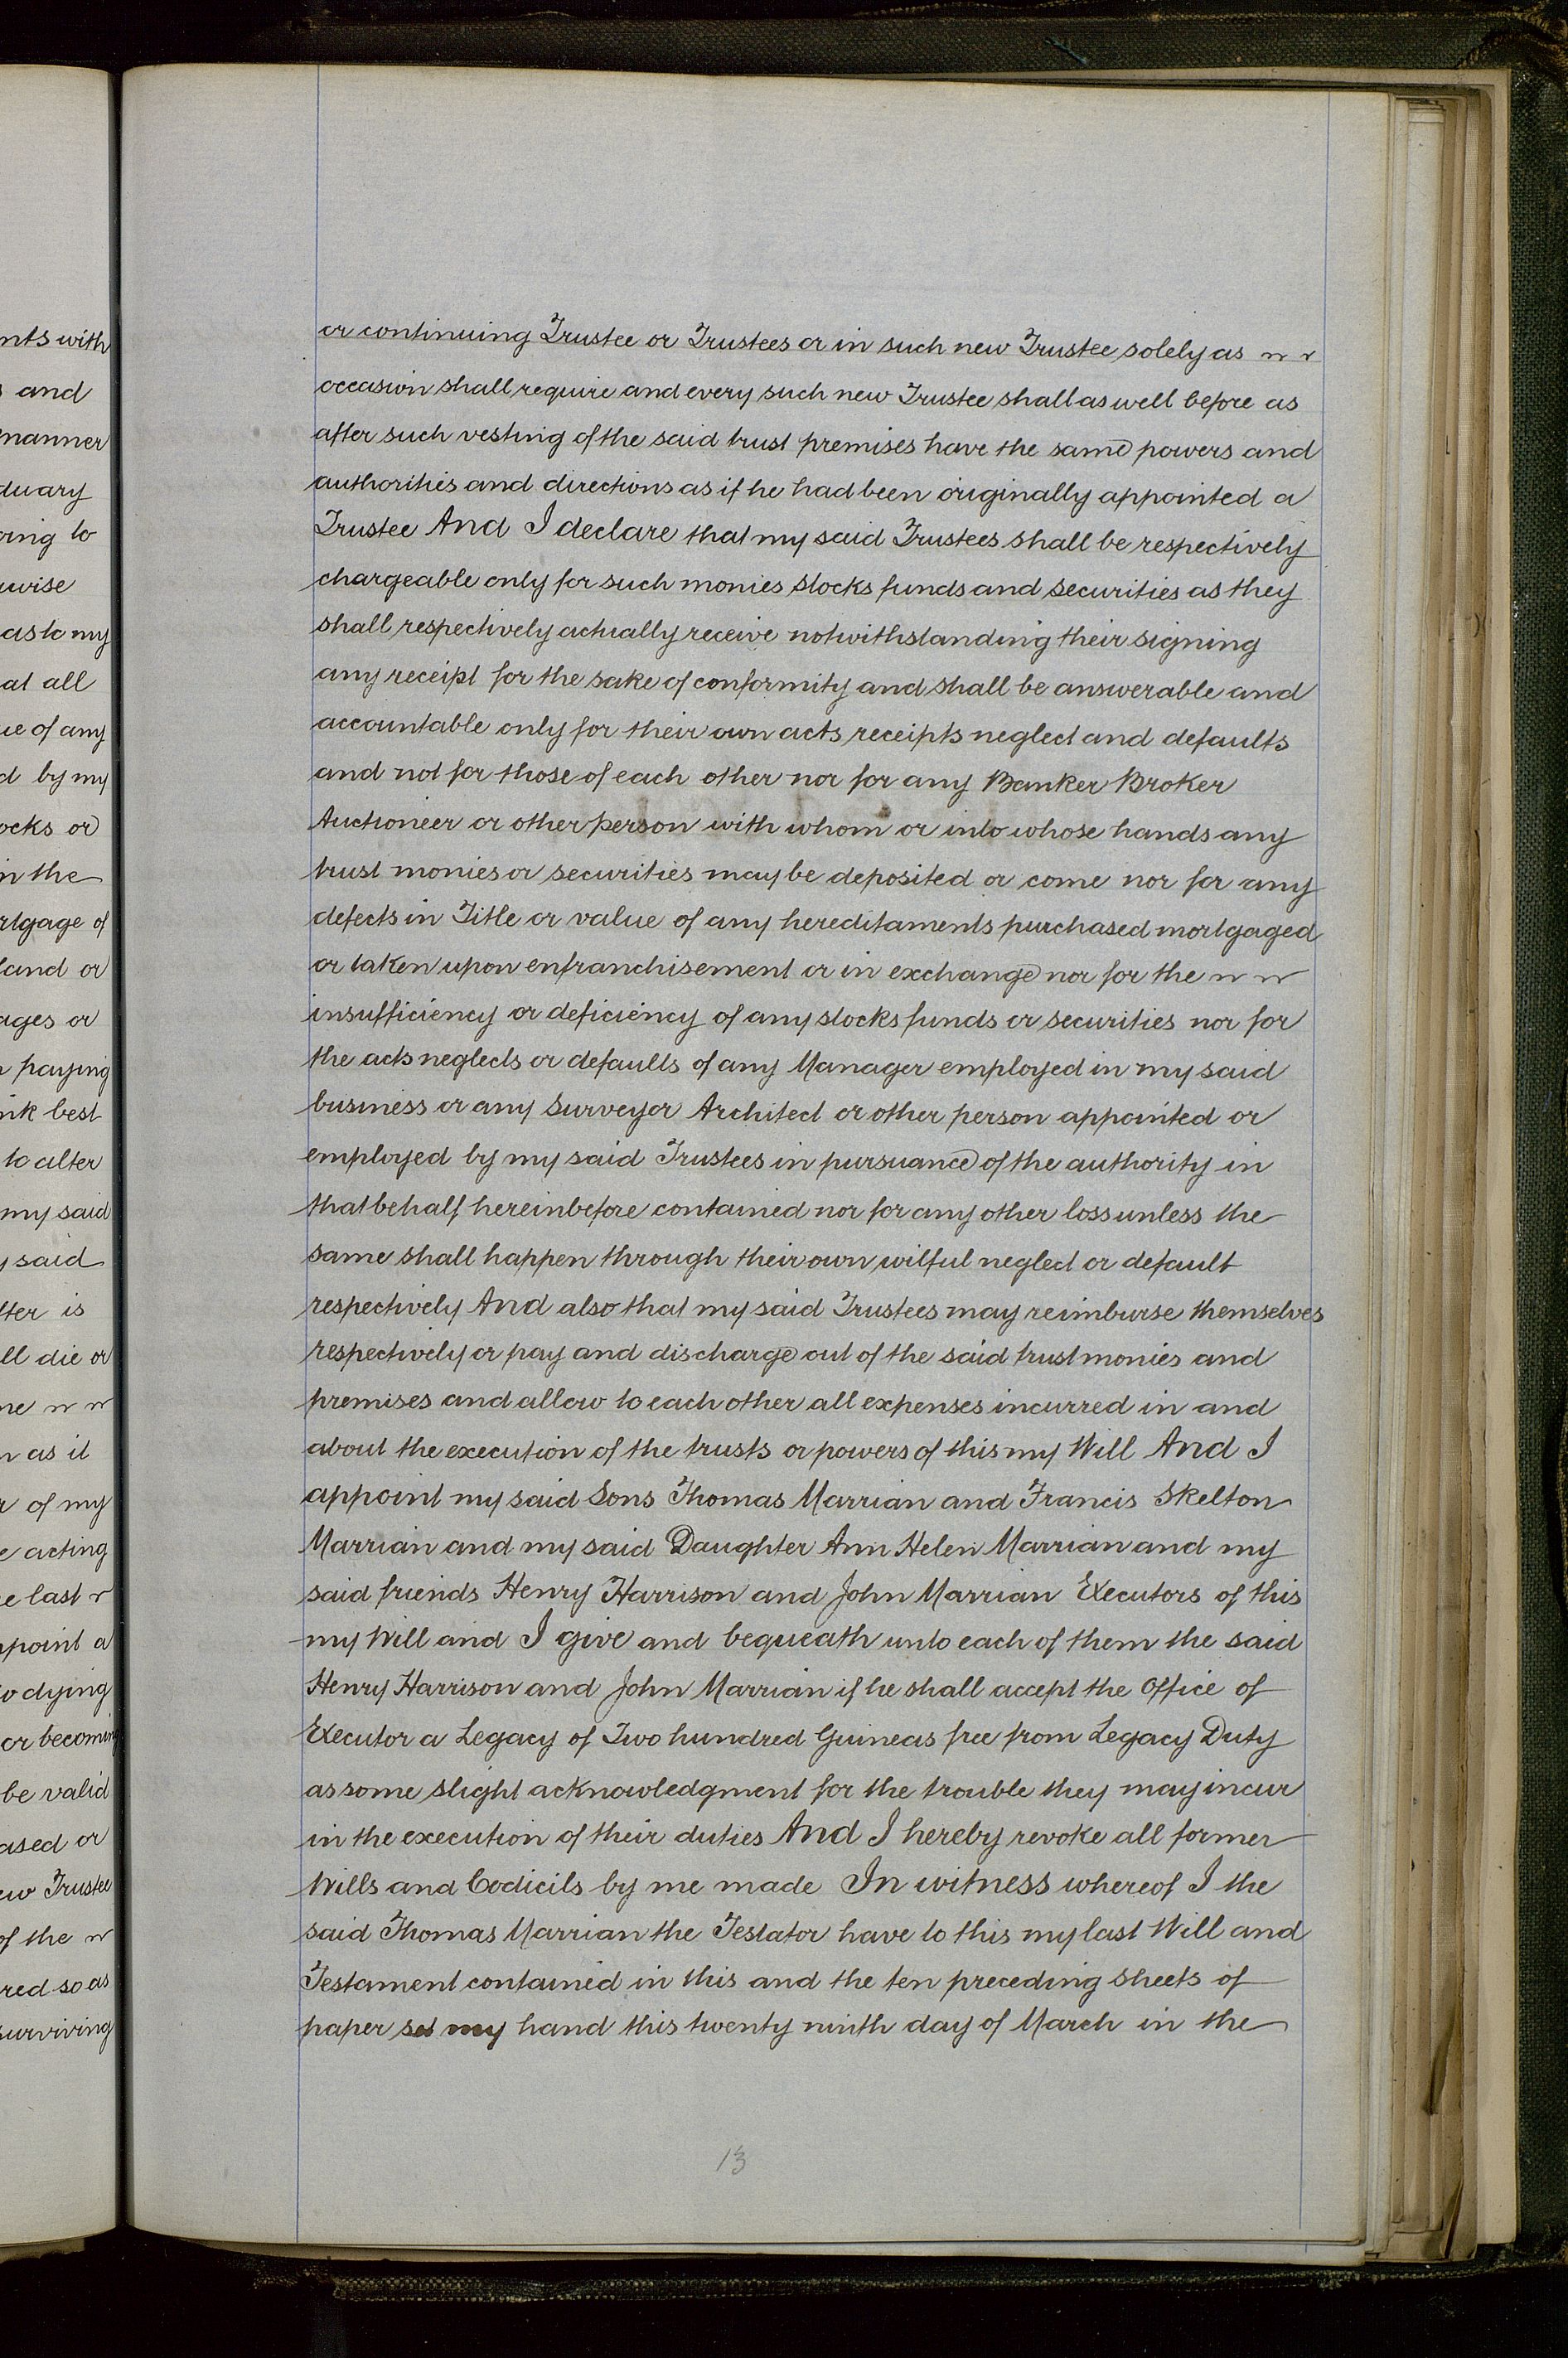 or continuing Trustee or Trustees or in such new Trustee solely as
occasion shall require and every such new Trustee shall as well before as
after such vesting of the said trust premises have the same powers and
authorities and directions as if he had been originally appointed a
Trustee And I declare that my said Trustees shall be respectively
chargeable only for such monies stocks funds and securities as they
shall respectively actually receive notwithstanding their signing
any receipt for the sake of conformity and shall be answerable and
accountable only for their own acts receipts neglect and defaults
and not for those of each other nor for any Banker Broker
Auctioneer or other person with whom or into whose hands any
trust monies or securities may be deposited or come nor for any
defects in Title or value of any hereditaments purchased mortgaged
or taken upon enfranchisement or in exchange nor for the
insufficiency or deficiency of any stocks funds or securities nor for
the acts neglects or defaults of any Manager employed in my said
business or any Surveyor Architect or other person appointed or
employed by my said Trustees in pursuance of the authority in
that behalf hereinbefore contained nor for any other loss unless the
same shall happen through their own wilful neglect or default
respectively And also that my said Trustees may reimburse themselves
respectively or pay and discharge out of the said trust monies and
premises and allow to each other all expenses incurred in and
about the execution of the trusts or powers of this my Will And I
appoint my said Sons Thomas Marrian and Francis Skelton
Marrian and my said Daughter Ann Helen Marrian and my
said friends Henry Harrison and John Marrian Executors of this
my Will and I give and bequeath unto each of them the said
Henry Harrison and John Marrian if he shall accept the Office of
Executor a Legacy of Two hundred Guineas free from Legacy Duty
as some slight acknowledgment for the trouble they may incur
in the execution of their duties And I hereby revoke all former
Wills and Codicils by me made In witness whereof I the
said Thomas Marrian the Testator have to this my last Will and
Testament contained in this and the ten preceding sheets of
paper set my hand this twenty ninth day of March in the
13